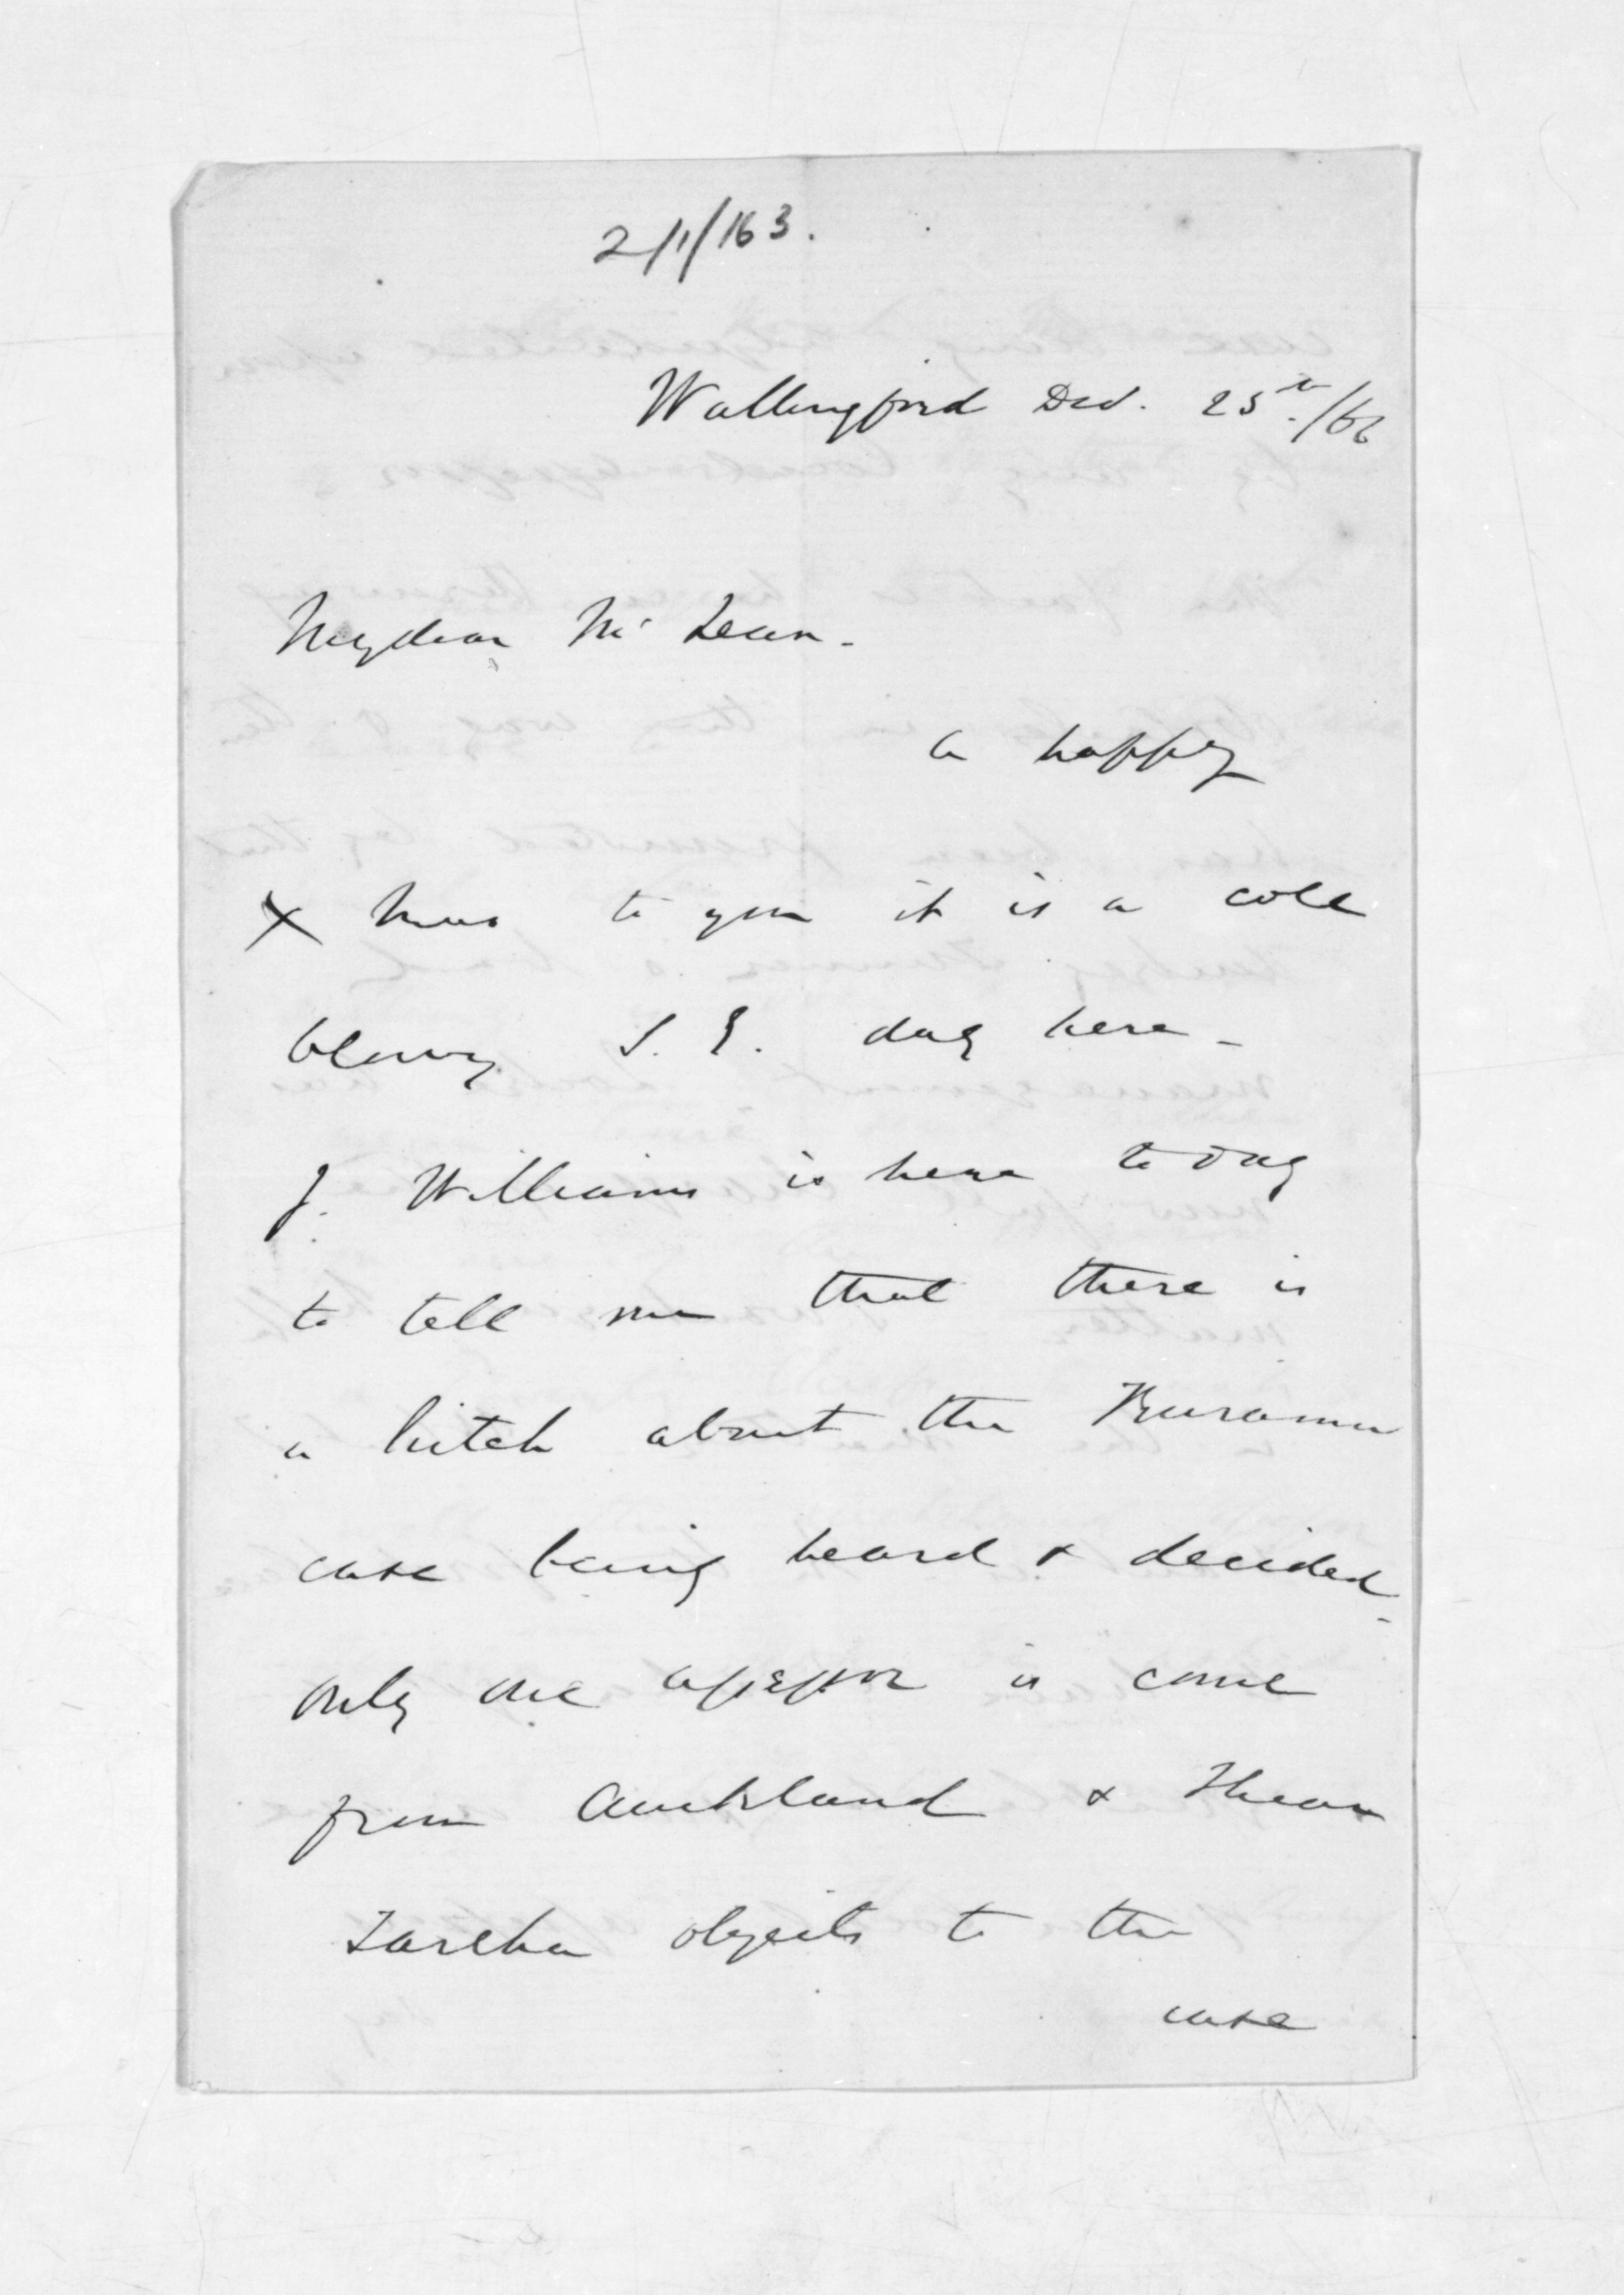 2/1/163.
Wallingford Dec. 25th/66
My dear McLean.
a happy
X mas to you it is a cold
blowy S. E. day here -
J. Williams is here to day
to tell me that there is
a hitch about the
case being heard & decided -
only one assessor is come
from Auckland &
Tareha objects to the
case